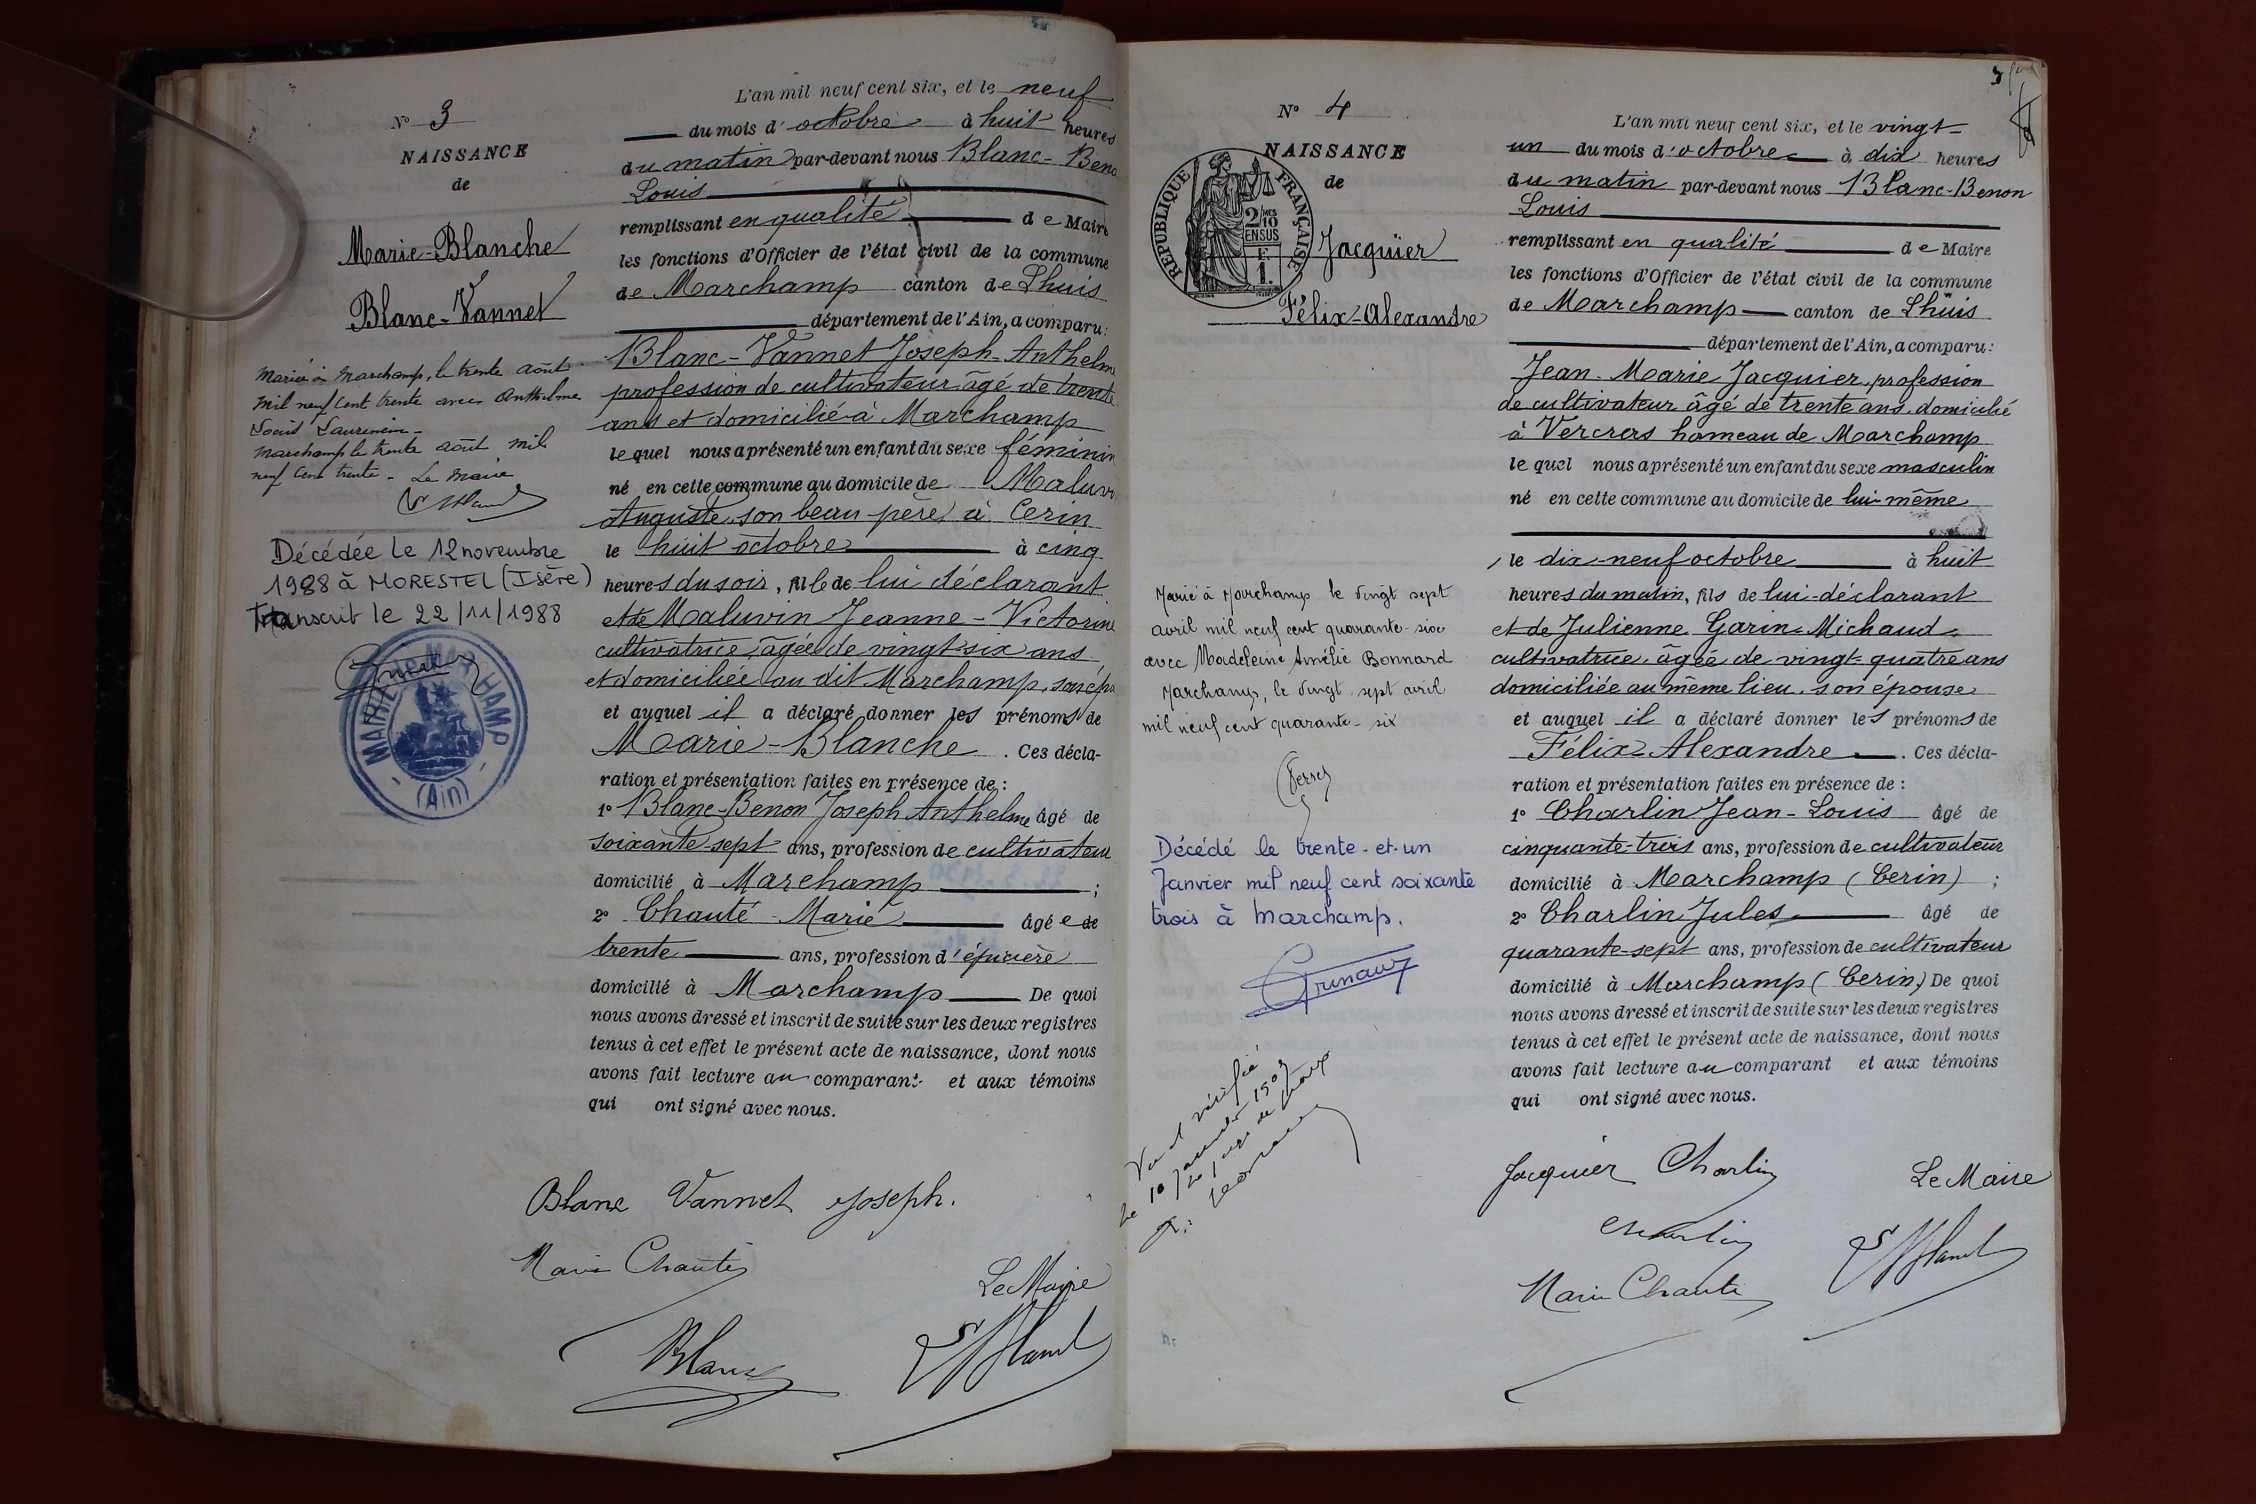 N° 3
NAISSANCE
de
Marie-Blanche
Blanc-Vannet
Mariée à Marchamp, le trente août
mil neuf cent trente avec Anthelme
Louis
Marchamp le trente août mil
neuf cent trente - Le Maire
Décédée le 12 novembre
1988 à MORESTEL (Isère)
Transcrit le 22/11/1988
MAIRIE DE MARCHAMP
- (Ain) -
L'an mil neuf cent six, et le neuf
du mois d'octobre à huit heures
du matin par-devant nous Blanc-Beno
Louis
remplissant en qualité de Maire
les fonctions d'Officier de l'état civil de la commune
de Marchamp canton de Lhuis
département de l'Ain, a comparu:
Blanc-Vannet Joseph-Anthelm
profession de cultivateur âgé de trente
ans et domicilié à Marchamp
lequel nous a présenté un enfant du sexe féminin
né en cette commune au domicile de Maluvi
Auguste, son beau père, à Cerin
le huit octobre à cinq
heures du soir, fille de lui déclarant
et de Maluvin Jeanne-Victorine
cultivatrice, âgée de vingt-six ans
et domiciliée au dit Marchamp, son ép
et auquel il a déclaré donner les prénoms de
Marie-Blanche . Ces décla-
ration et présentation faites en présence de :
1° Blanc-Benon Joseph Anthelme âgé de
soixante-sept ans, profession de cultivateur
domicilié à Marchamp ;
2° Chanté Marie âgée de
trente ans, profession d'épicière
domicilié à Marchamp De quoi
nous avons dressé et inscrit de suite sur les deux registres
tenus à cet effet le présent acte de naissance, dont nous
avons fait lecture au comparant et aux témoins
qui ont signé avec nous.
Blanc Vannet Joseph.
Marie Chanté
Le Maire
Blanc
N° 4
NAISSANCE
de
RÉPUBLIQUE FRANÇAISE
2/10
EN SUS
1F.
Jacquier
Félix-Alexandre
Marié à Marchamp le vingt sept
avril mil neuf cent quarante-six
avec Madeleine Amélie Bonnard
Marchamp, le vingt sept avril
mil neuf cent quarante-six
Décédé le trente-et-un
Janvier mil neuf cent soixante
trois à Marchamp.
Vu et vérifié
3
L'an mil neuf cent six, et le vingt-
un du mois d'octobre à dix heures
du matin par-devant nous Blanc-Benon
Louis
remplissant en qualité de Maire
les fonctions d'Officier de l'état civil de la commune
de Marchamp canton de Lhuis
département de l'Ain, a comparu:
Jean-Marie Jacquier, profession
de cultivateur âgé de trente ans, domicilié
à Vercras hameau de Marchamp
lequel nous a présenté un enfant du sexe masculin
né en cette commune au domicile de lui-même
le dix-neuf octobre à huit
heures du matin, fils de lui-déclarant
et de Julienne Garin-Michaud,
cultivatrice, âgée de vingt-quatre ans
domiciliée au même lieu, son épouse
et auquel il a déclaré donner les prénoms de
Félix-Alexandre . Ces décla-
ration et présentation faites en présence de :
1° Charlin Jean-Louis âgé de
cinquante-trois ans, profession de cultivateur
domicilié à Marchamp (Cerin) ;
2° Charlin Jules âgé de
quarante-sept ans, profession de cultivateur
domicilié à Marchamp (Cerin) De quoi
nous avons dressé et inscrit de suite sur les deux registres
tenus à cet effet le présent acte de naissance, dont nous
avons fait lecture au comparant et aux témoins
qui ont signé avec nous.
Jacquier Charlin
Le Maire
Charlin
Marie Chanté